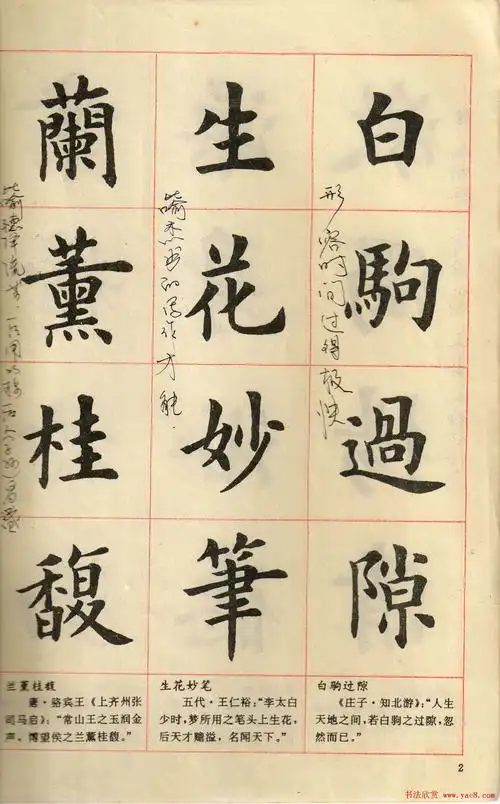 白駒過隙
形容时间过得极快
生花妙筆
喻杰出的写作才能.
蘭薰桂馥
喻德泽流芳.
白驹过隙
《庄子·知北游》：“人生
天地之间，若白驹之过隙，忽
然而已。”
生花妙笔
五代·王仁裕：“李太白
少时，梦所用之笔头上生花，
后天才赡溢，名闻天下。”
兰薰桂馥
唐·骆宾王《上齐州张
司马启》：“常山王之玉润金
声，博望侯之兰薰桂馥。”
2
书法欣赏
www.yac8.com